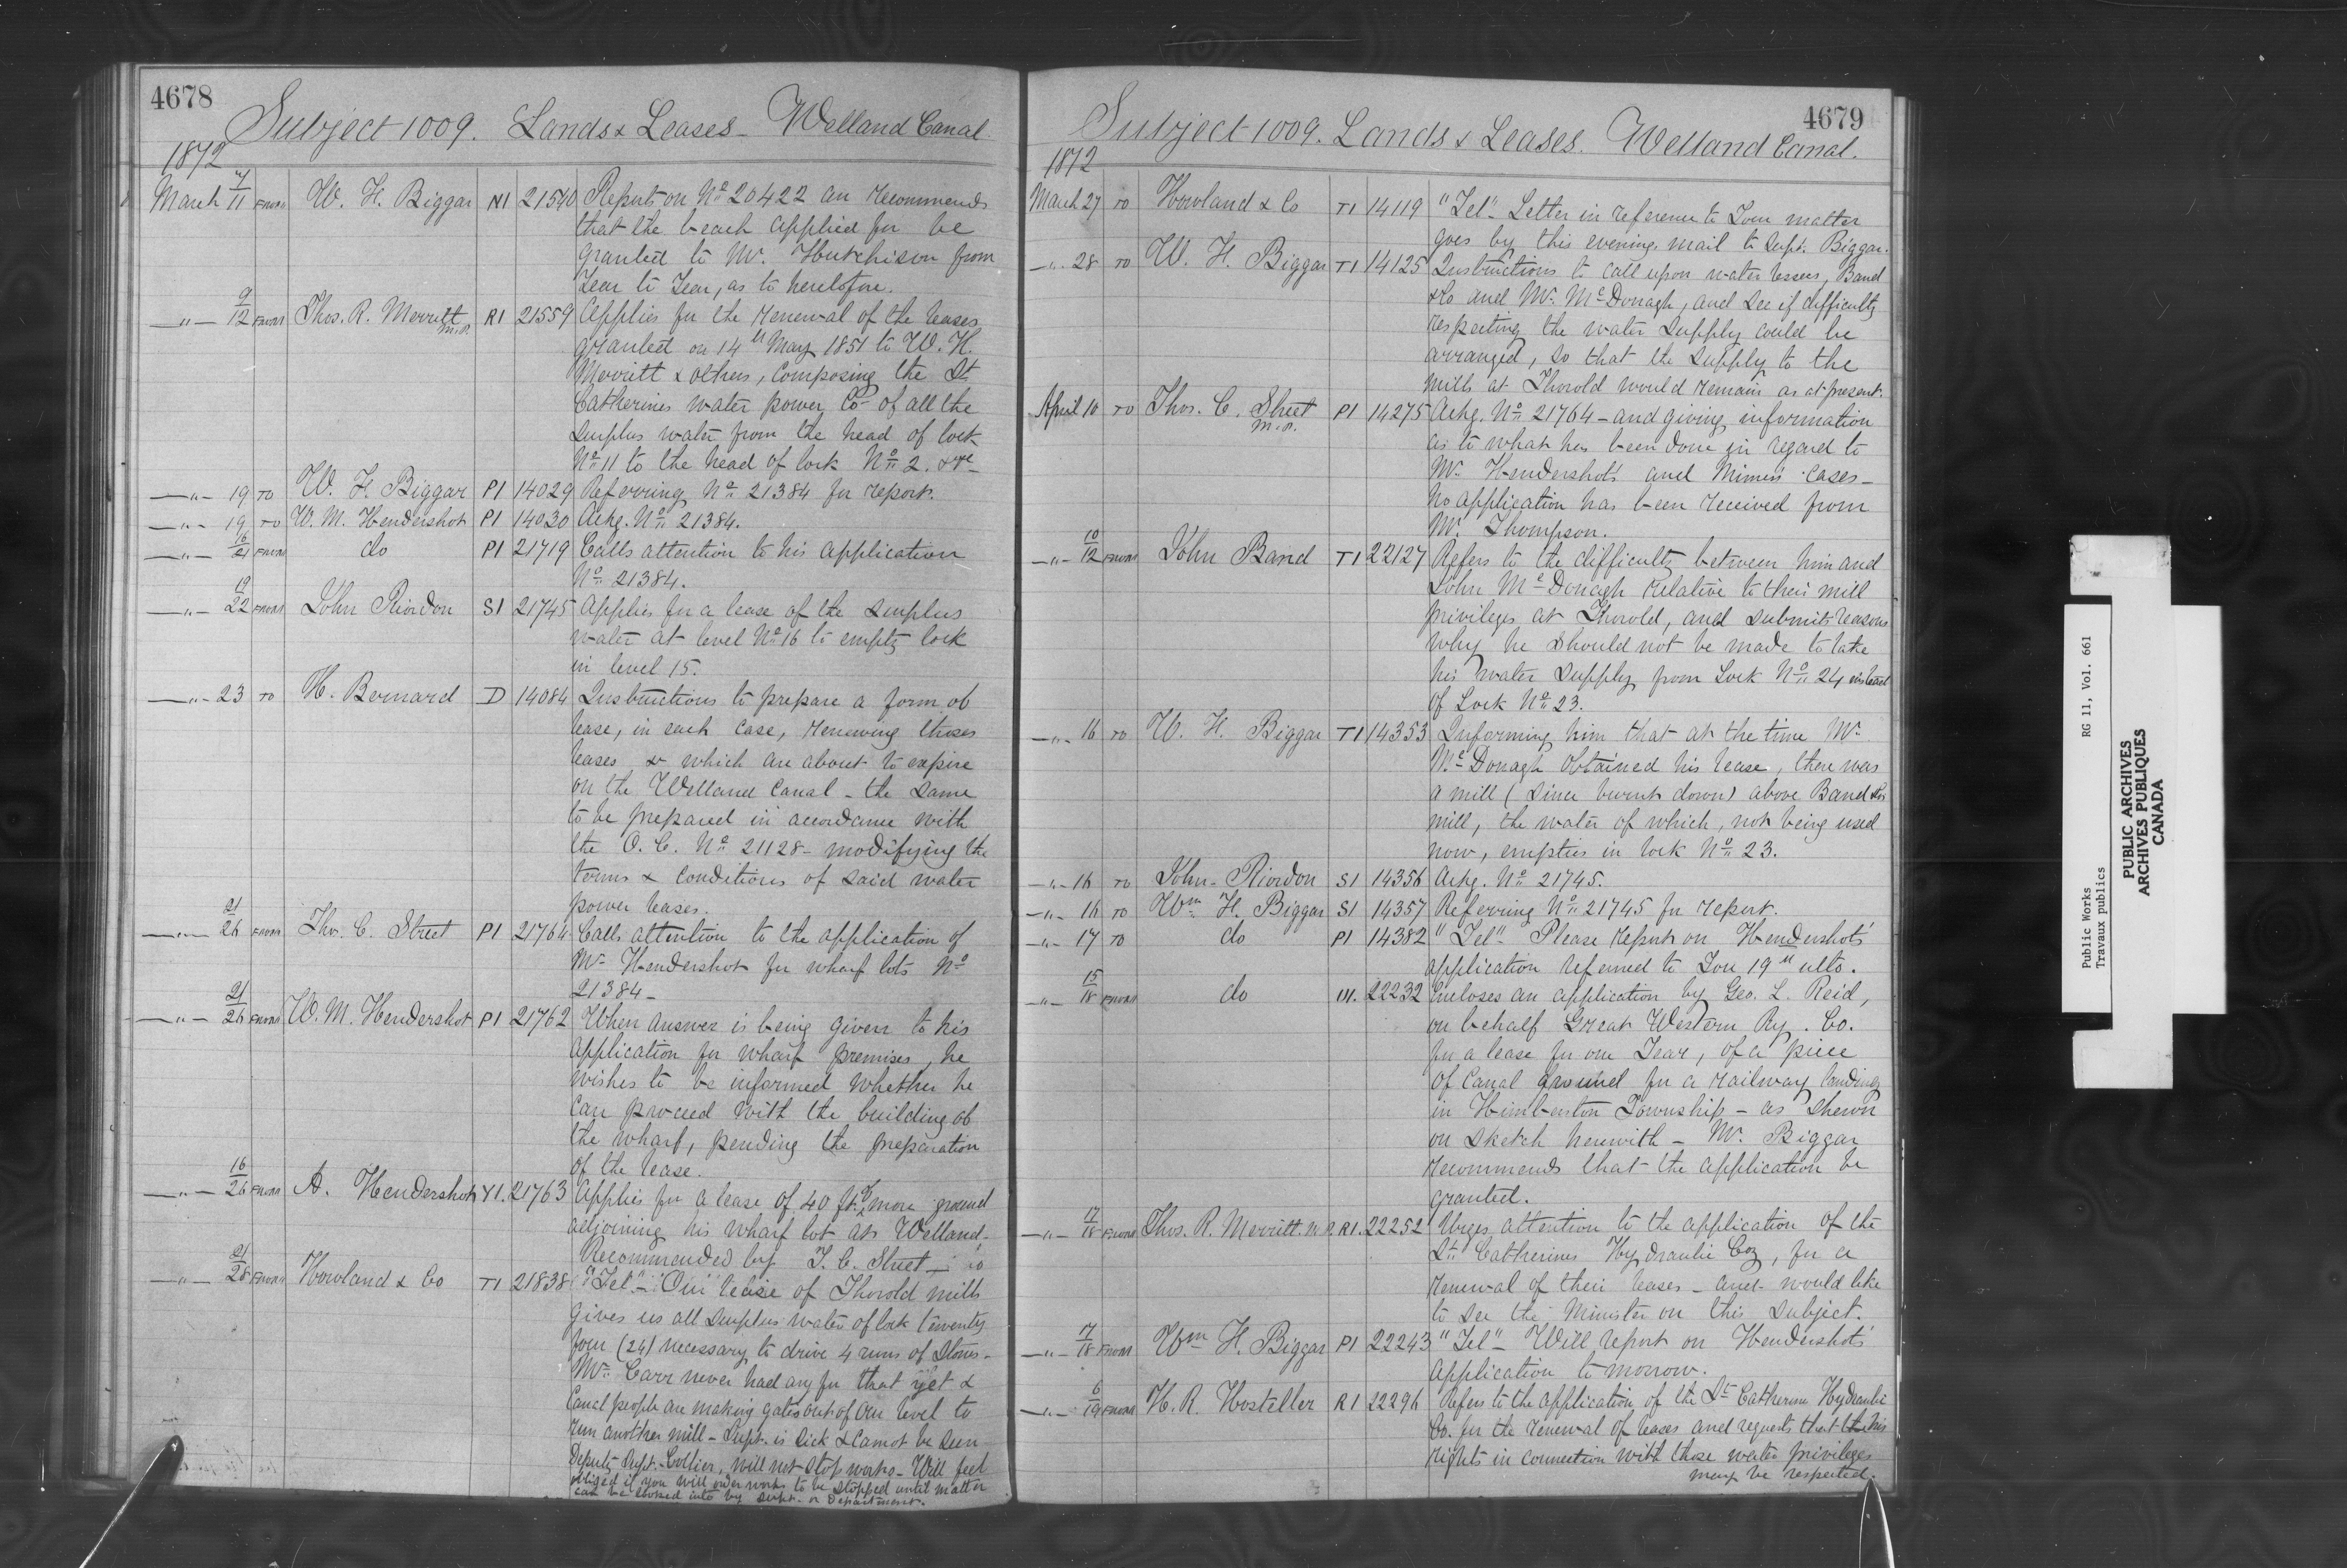 4678
Subject 1009. Lands & Leases - Welland Canal
1872
March 7/11 From W. H. Biggar N1 21540 Reports on No. 20422 an recommends
that the beach applied for be
granted to Mr. Hutchison from
Year to Year, as to heretofore.
—"— 9/12 From Thos. R. Merritt M.P. R1 21559 Applies for the renewal of the leases
granted on 14th May 1851 to W. H.
Merritt & others, composing the St
Catherines water power Co- of all the
Surplus water from the head of lock
No. 11 to the head of lock No. 2. &c-
—"— 19 To W. H. Biggar P1 14029 Referring No. 21384 for report.
—"— 19 To W. M. Hendershot P1 14030 Ackg. No. 21384.
—"— 16/21 From do P1 21719 Calls attention to his application
No. 21384.
—"— 19/22 From John Riordon S1 21745 Applies for a lease of the Surplus
water at level No. 16 to empty lock
in level 15.
—"— 23 To H. Bernard D 14084 Instructions to prepare a form of
lease, in each case, renewing those
leases & which are about to expire
on the Welland Canal - the same
to be prepared in accordance with
the O. C. No. 21128 - modifying the
terms & conditions of said water
power leases.
—"— 21/26 From Thos. C. Street P1 21764 Calls attention to the application of
Mr. Hendershot for wharf lots No.
21384-
—"— 21/26 From W. M. Hendershot P1 21762 When answer is being given to his
application for wharf premises, he
wishes to be informed whether he
can proceed with the building of
the wharf, pending the preparation
of the lease.
—"— 16/26 From A. Hendershot Y1. 21763 Applies for a lease of 40 ft. of more ground
adjoining his wharf lot at Welland-
Recommended by T. C. Street -
—"— 21/28 From Howland & Co T1 21838 "Tel" - Our lease of Thorold mills
gives us all Surplus water of lock twenty
four (24) necessary to drive 4 runs of Stones -
Mr. Carr never had any for that yet &
Canal people are making gates out of our level to
run another mill - Supt. is sick & cannot be seen -
Deputy Supt. Collier, will not stop works - Will feel
obliged if you will order works to be stopped until matter
can be looked into by Supt. or Department.
4679
Subject 1009. Lands & Leases. Welland Canal.
1872
March 27 To Howland & Co T1 14119 "Tel" Letter in reference to Your matter
goes by this evening mail to Supt. Biggar.
—"— 28 To W. H. Biggar T1 14125 Instructions to call upon water lessees, Band
& Co and Mr. McDonagh, and see if difficulty
respecting the water supply could be
arranged, so that the supply to the
mills at Thorold would remain as at present.
April 10 To Thos. C. Street M.P. P1 14275 Ackg. No. 21764 - and giving information
as to what has been done in regard to
Mr. Hendershot's and Mimens' cases -
No application has been received from
Mr. Thompson.
—"— 10/12 From John Band T1 22127 Refers to the difficulty between him and
John McDonagh relative to their mill
privileges at Thorold, and submits reasons
why he should not be made to take
his water supply from Lock No. 24 instead
of Lock No. 23.
—"— 16 To W. H. Biggar T1 14353 Informing him that at the time Mr.
McDonagh obtained his lease, there was
a mill (since burnt down) above Band & Co's
mill, the water of which, not being used
now, empties in lock No. 23.
—"— 16 To John Riordon S1 14356 Ackg. No. 21745.
—"— 16 To Wm H. Biggar S1 14357 Referring No. 21745 for report.
—"— 17 To do P1 14382 "Tel" Please report on Hendershot's
application referred to You 19th ulto.
—"— 15/18 From do 22232 Encloses an application by Geo. L. Reid,
on behalf Great Western Ry. Co.
for a lease for one Year, of a piece
of Canal ground for a railway landing
in Himberston Township - as shewn
on sketch herewith - Mr. Biggar
recommends that the application be
granted.
—"— 17/18 From Thos. R. Merritt. M.P. R1. 22252 Urges attention to the application of the
St. Catherines Hydraulic Coy, for a
renewal of their leases - and would like
to see the Minister on this subject.
—"— 17/18 From Wm H. Biggar P1 22243 "Tel" - Will report on Hendershot's
application to morrow.
—"— 6/19 From H. R. Hosteller R1 22296 Refers to the application of the St. Catherine Hydraulic
Co. for the renewal of leases and requests that his
rights in connection with those water privileges
may be respected.
Public Works RG 11, Vol. 661
Travaux publics
PUBLIC ARCHIVES
ARCHIVES PUBLIQUES
CANADA